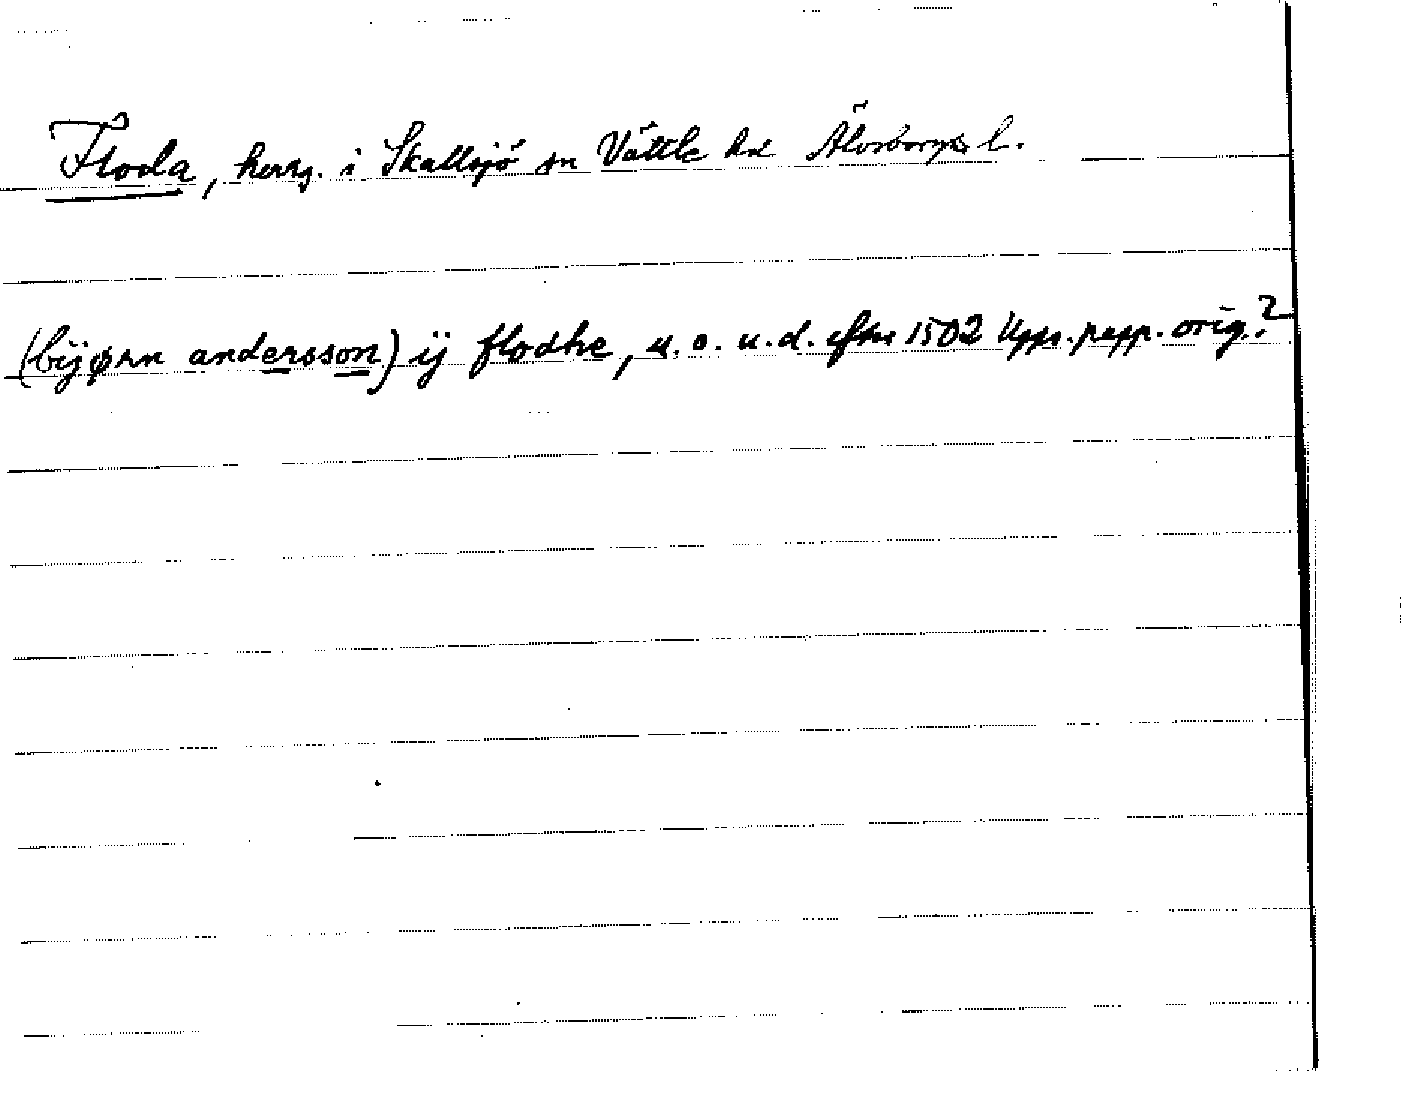 Floda, herrg. i Skallsjö sn Vättle hd Älvsborgs l.
(bijørn andersson) ij flodhe, u. o. u. d. efter 1502 Upps. papp. orig.?